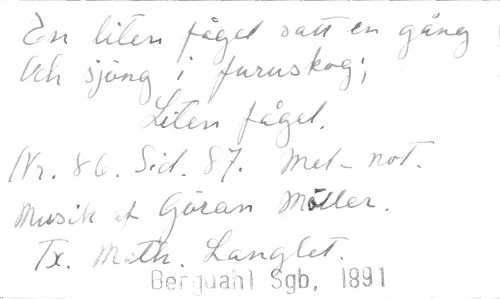 En liten fågel satt en gång
Och sjöng i furuskog;
Liten fågel.
Nr. 86. Sid. 87. Mel-not.
Musik af Göran Möller.
Tx. Math. Langlet.
Bergdahl Sgb, 1891